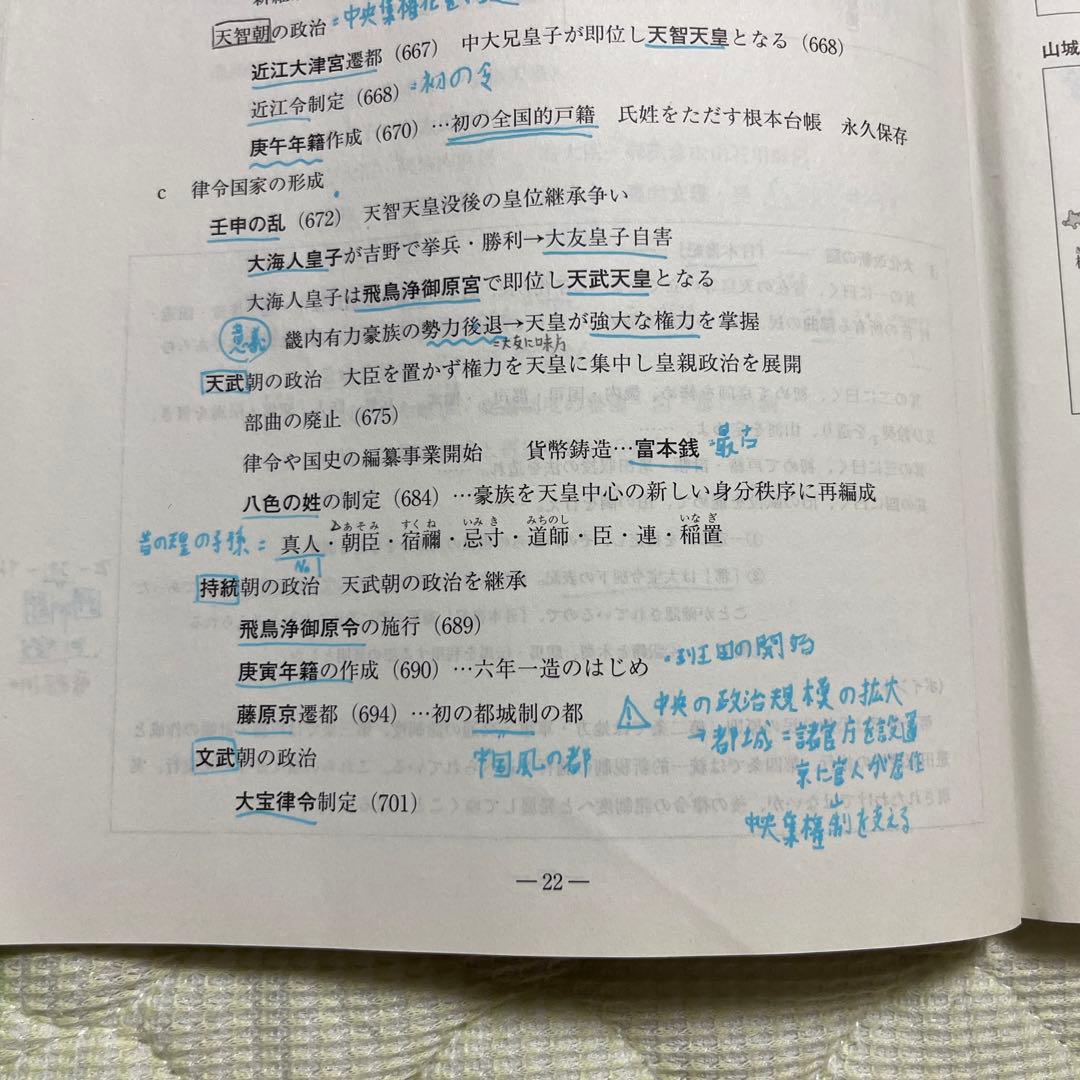 天智朝の政治 =中央集権化
近江大津宮遷都(667) 中大兄皇子が即位し天智天皇となる(668)
近江令制定(668) =初の令
庚午年籍作成(670)…初の全国的戸籍 氏姓をただす根本台帳 永久保存
山城
c 律令国家の形成
壬申の乱(672) 天智天皇没後の皇位継承争い
大海人皇子が吉野で挙兵・勝利→大友皇子自害
大海人皇子は飛鳥浄御原宮で即位し天武天皇となる
意義 畿内有力豪族の勢力後退→天皇が強大な権力を掌握
=大友に味方
天武朝の政治 大臣を置かず権力を天皇に集中し皇親政治を展開
部曲の廃止(675)
律令や国史の編纂事業開始 貨幣鋳造…富本銭 =最古
八色の姓の制定(684)…豪族を天皇中心の新しい身分秩序に再編成
あそみ すくね いみき みちのし いなぎ
昔の天皇の子孫= 真人・朝臣・宿禰・忌寸・道師・臣・連・稲置
No1
持統朝の政治 天武朝の政治を継承
飛鳥浄御原令の施行(689)
庚寅年籍の作成(690)…六年一造のはじめ ・班田の開始
藤原京遷都(694)…初の都城制の都
中国風の都
中央の政治規模の拡大
→都城=諸官庁を設置
京に官人が居住
中央集権制を支える
文武朝の政治
大宝律令制定(701)
―22―